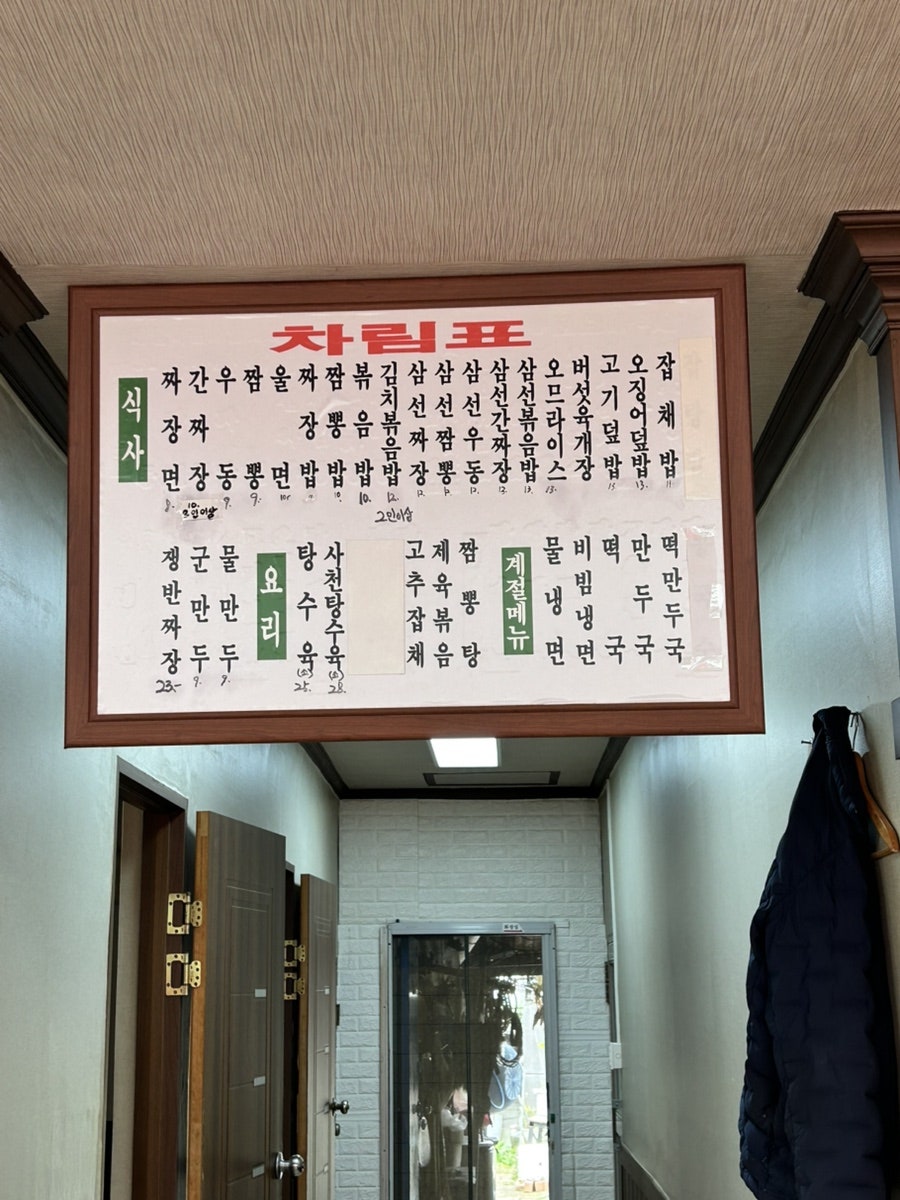 차림표
식사
짜장면 8.
간짜장 10. 2인이상
우동 9.
짬뽕 9.
울면 10.
짜장밥
짬뽕밥 10.
볶음밥 10.
김치볶음밥 12. 2인이상
삼선짜장 12.
삼선짬뽕 12.
삼선우동 12.
삼선간짜장 13.
삼선볶음밥 13.
오므라이스 13.
버섯육개장
고기덮밥 13.
오징어덮밥 13.
잡채밥 11.
쟁반짜장 23.-
군만두 9.
물만두 9.
요리
탕수육 (소) 25.
사천탕수육 (소) 28.
고추잡채
제육볶음
짬뽕탕
계절메뉴
물냉면
비빔냉면
떡국
만두국
떡만두국